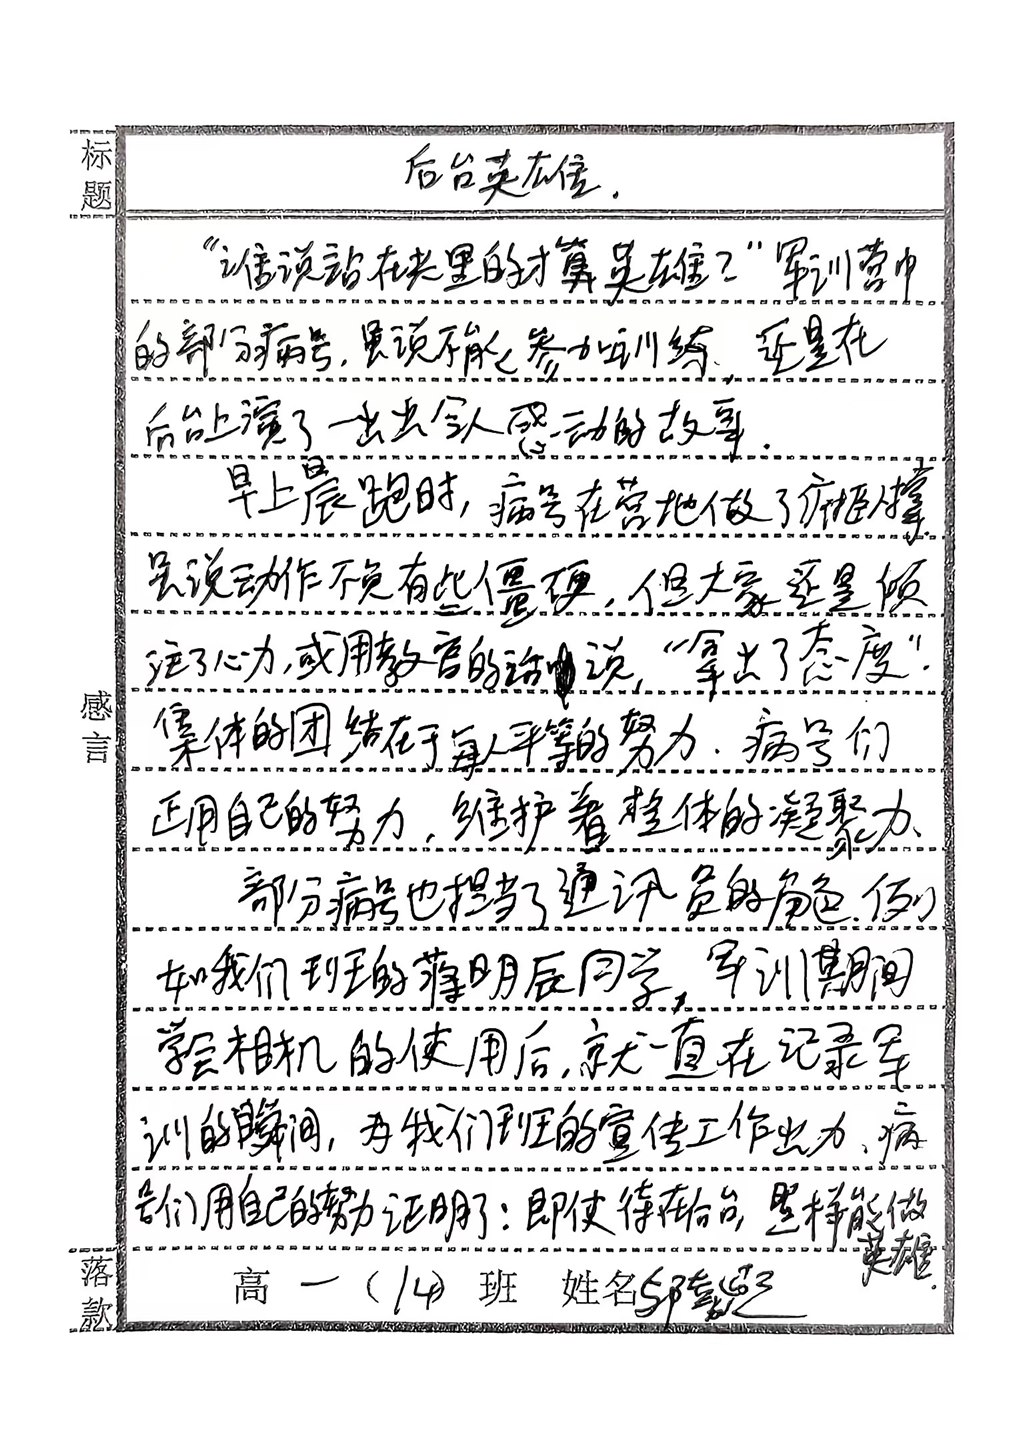 标题
后台英雄.
“谁说站在光里的才算英雄？”军训营中
的部分病号,虽说不能参加训练,还是在
后台上演了一出出令人感动的故事.
早上晨跑时,病号在营地做了平板撑
虽说动作不免有些僵硬,但大家还是倾
注了心力,或用教官的话说,“拿出了态度”.
集体的团结在于每人平等的努力.病号们
正用自己的努力,维护着整体的凝聚力、
感言
部分病号也担当了通讯员的角色.例
如我们班的蒋明辰同学,军训期间
学会相机的使用后,就一直在记录军
训的瞬间,为我们班的宣传工作出力、病
号们用自己的努力证明了:即使待在后台,照样能做
英雄.
落款
高一(14)班 姓名